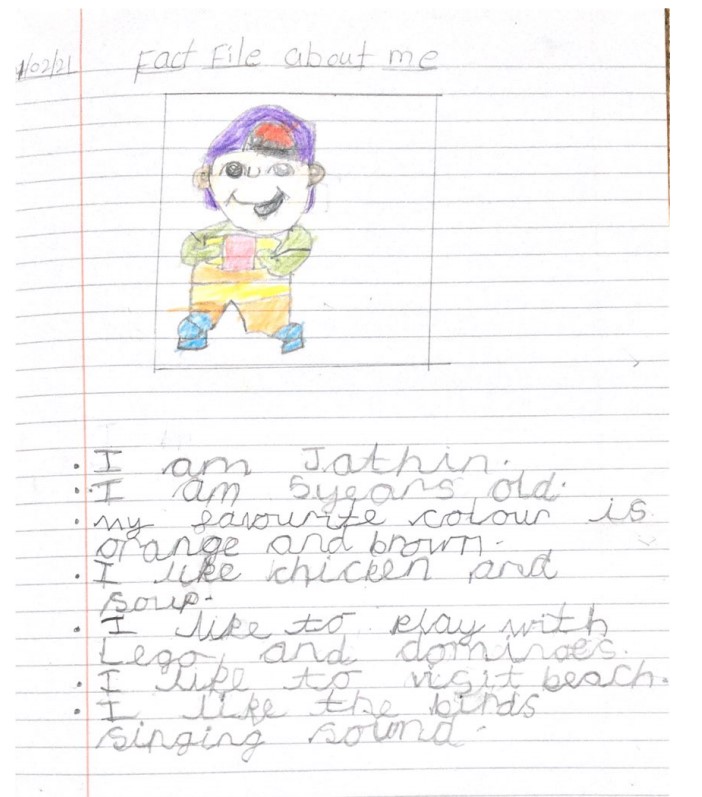 1/02/21 Fact File about me
. I am Jathin.
. I am 5years old.
. my favourite colour is
orange and brown.
. I like chicken and
soup.
. I like to play with
Lego, and dominoes.
. I like to visit beach.
. I like the birds
singing sound.